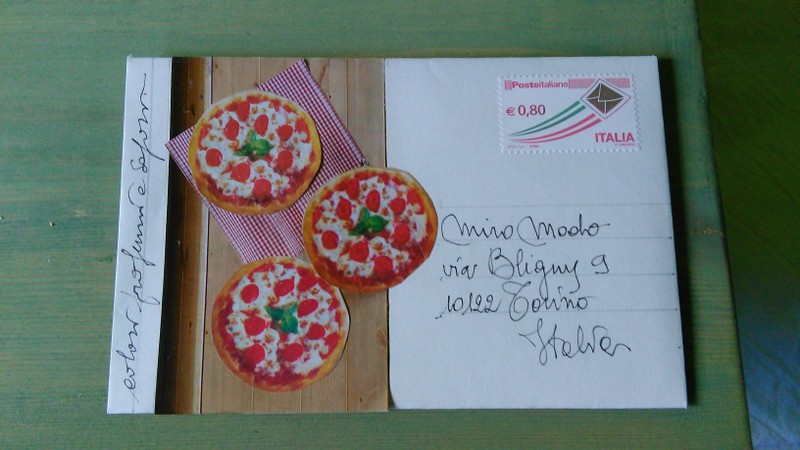 colori profumi e sapori
Posteitaliane
€ 0,80
ITALIA
Miro Modo
via Bligny 9
10122 Torino
Italia